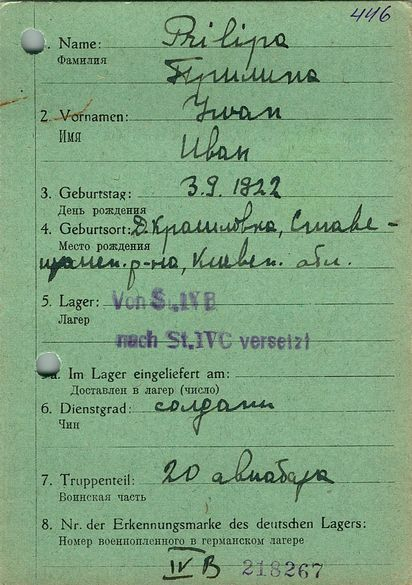 446
1. Name: Prilipa
Фамилия
Прилипа
2. Vornamen: Iwan
Имя
Иван
3. Geburtstag: 3.9.1922
День рождения
4. Geburtsort: Д. Крашиловка, Ставе-
Место рождения
щанск. р-на, Киевск. обл.
5. Lager: Von St.IVB
Лагер
nach St.IVC versetzt
5a. Im Lager eingeliefert am:
Доставлен в лагер (число)
6. Dienstgrad: солдат
Чин
7. Truppenteil: 20 авиабаза
Воинская часть
8. Nr. der Erkennungsmarke des deutschen Lagers:
Номер военнопленного в германском лагере
IV B 218267